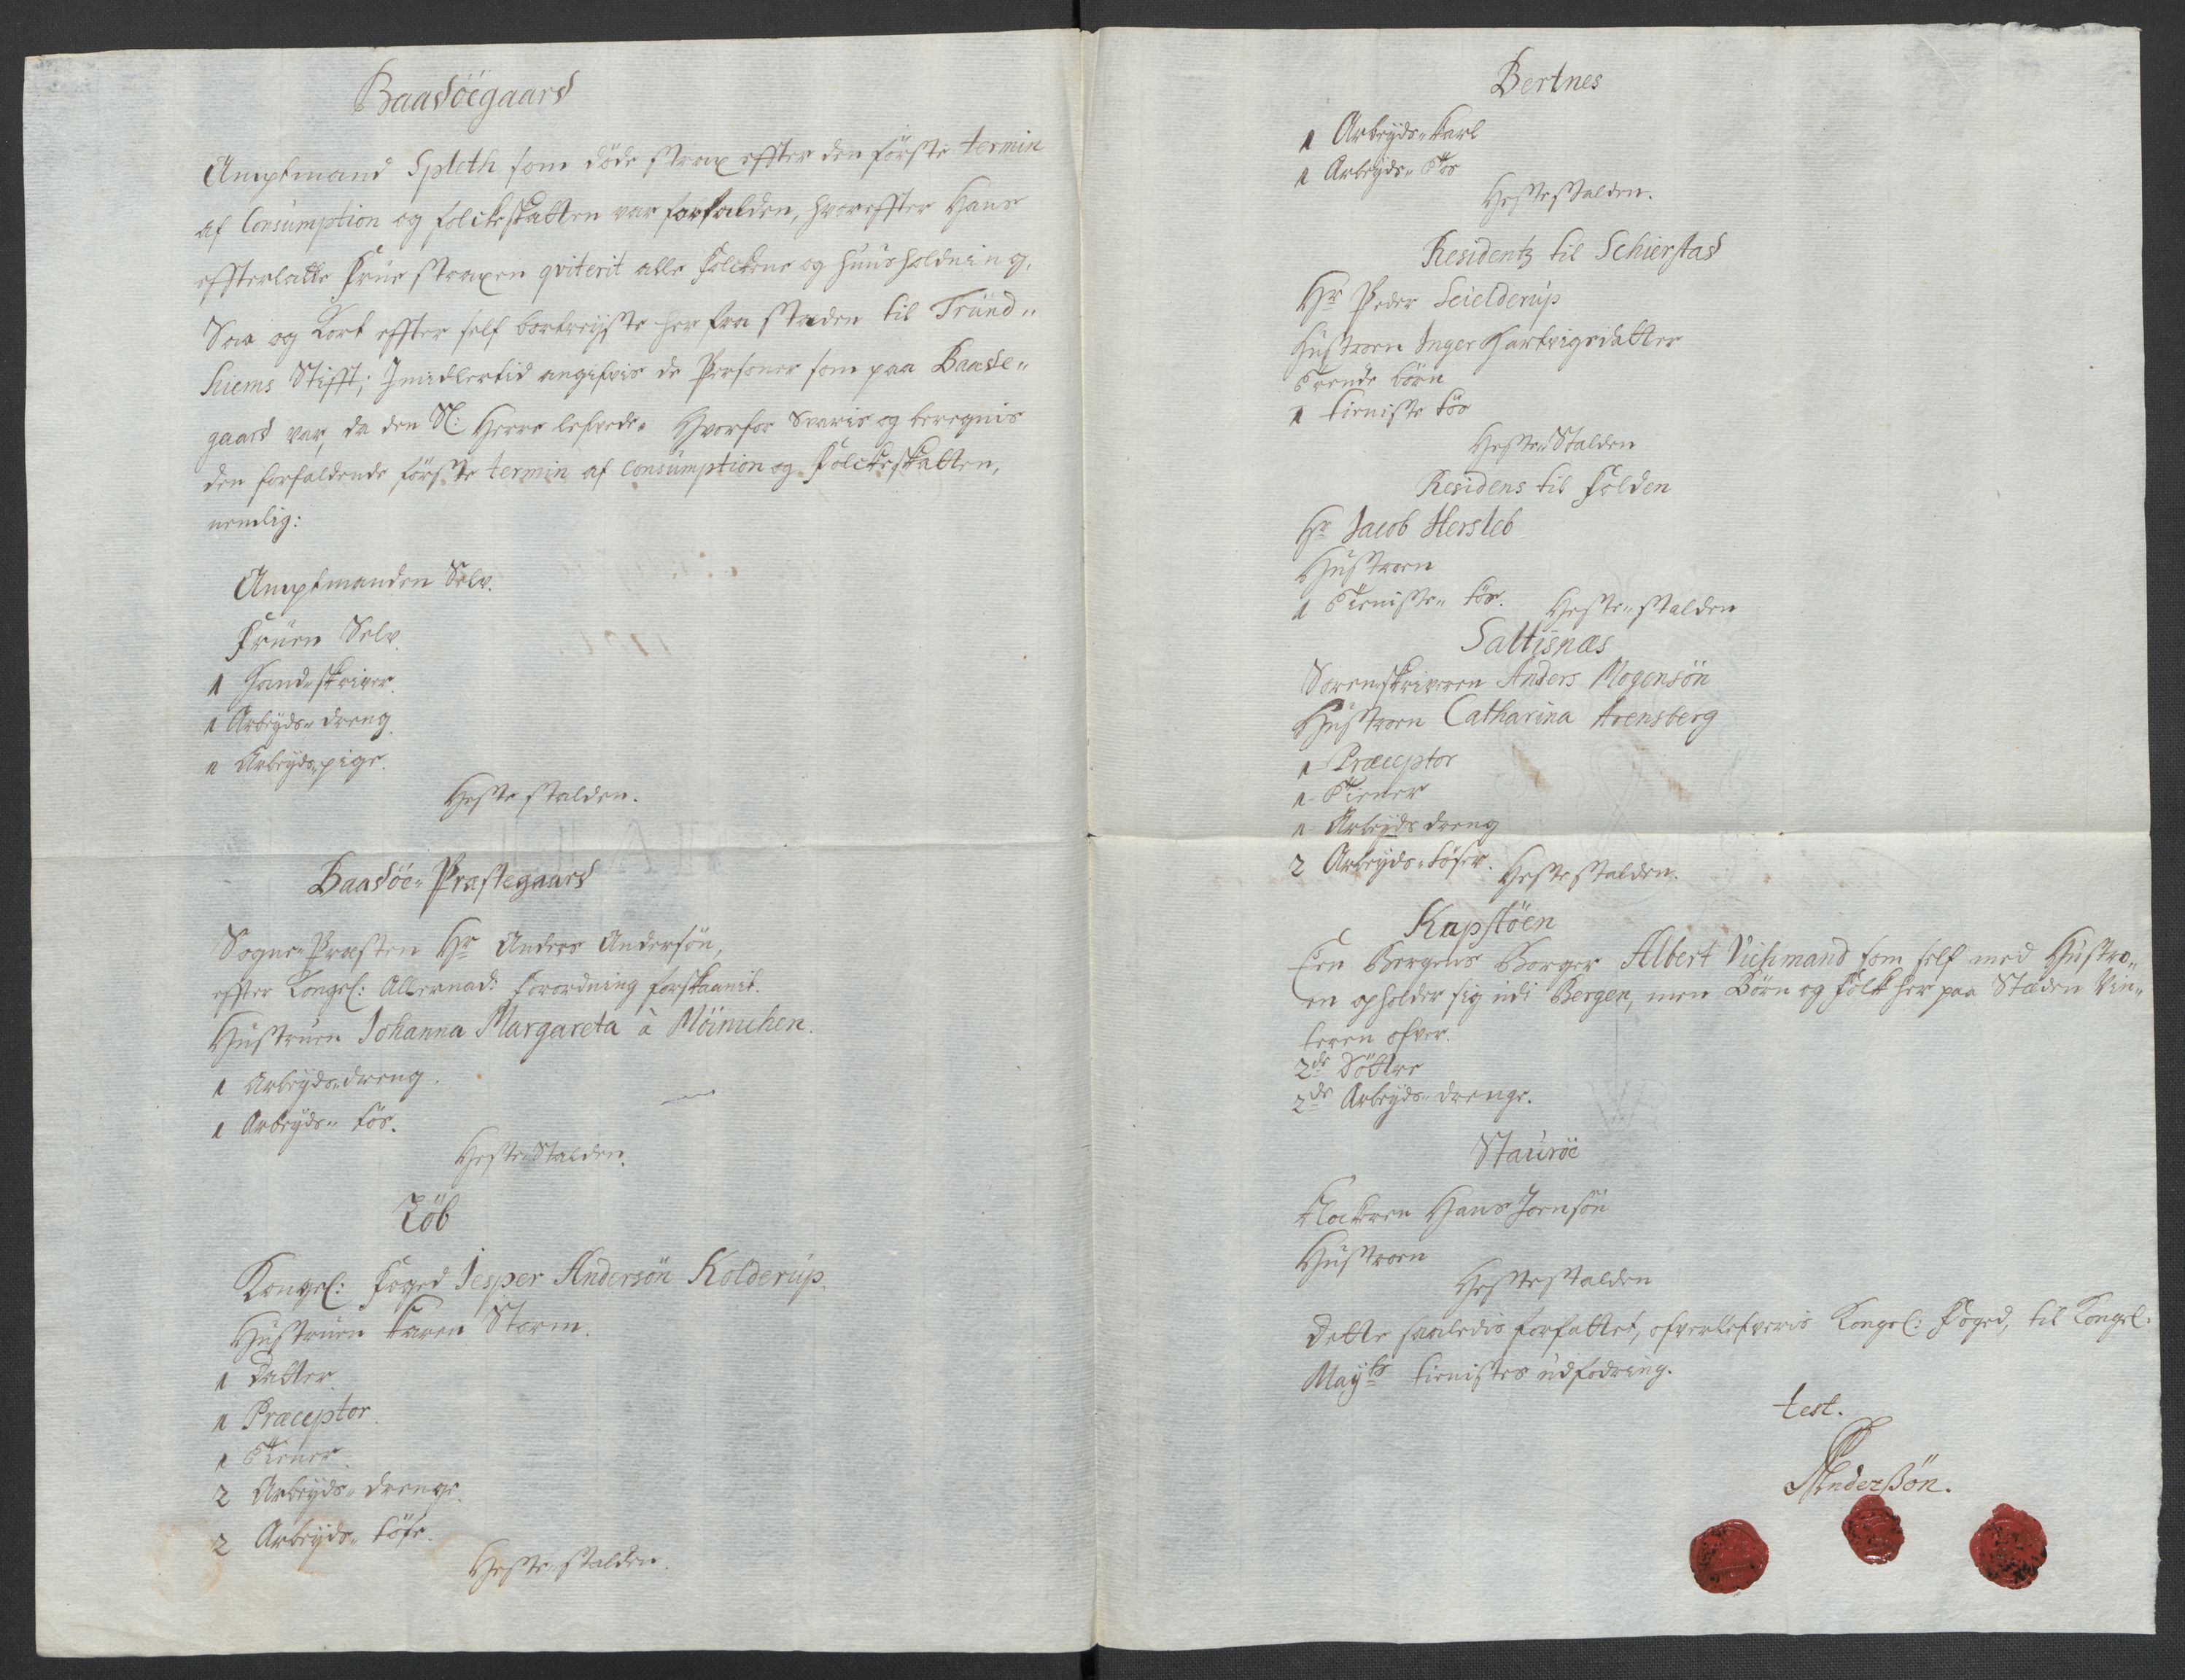 Baadöegaard
Amptmand Spleth som döde strax effter den förste termin
af Consumption og folckeskatten var forfalden, hvoreffter Hans
effterlatte Frue straxen qviterit alle Folckene og huusholdning,
Saa og Kort effter self bortreyste her fra stæden til Trund„
hiems Stifft; Imidlertid angifvis de Personer som paa Baadö„
gaard var, da den Sl: Herre lefvede. Hvorfor Svaris og beregnis
den forfaldende förste termin af Consumption og Folckeskatten,
nemlig:
Amptmanden Selv.
Fruen Selv.
1 Handskriver.
1 Arbeyds„ dreng.
1 Arbeyds„ pige.
Heste stalden.
Baadöe„ Præstegaard
Sogne„ Præsten Hr Anders Andersön,
effter Kongel: Allernad: Forordning forskaanit.
Hustruen Johanna Margareta à Möinichen.
1 Arbeyds„ dreng.
1 Arbeyds„ tös.
Heste Stalden.
Löb
Kongel: Foged Jesper Andersön Kolderup.
Hustruen Karen Storm.
1 Datter.
1 Præceptor.
1 Tiener.
2 Arbeyds„ drenge.
2 Arbeyds„ töse.
Heste„ stalden.
Bertnes
1 Arbeyds„ Karl
1 Arbeyds„ Tös
Hestestalden.
Residentz til Schierstad
Hr Peder Seielderup
Hustroen Inger Hartvigsdatter
Trende börn
1 tieniste tös
Heste„ Stalden
Residens til Folden
Hr Jacob Hersleb
Hustroen
1 Tieniste„ tös. Heste„ stalden
Saltisnæs
Sorenskriveren Anders Mogensön
Hustroen Catharina Arensberg
1 Præceptor
1 Tiener
1 Arbeyds dreng
2 Arbeyds„ töser. Hestestalden.
Kapstöen
Een Bergens Borger Albert Vichmand som self med Hustro„
en opholder sig udi Bergen, men Börn og Folk her paa Stæden Vin„
teren ofver.
2de Döttre
2de Arbeyds„ drenge.
Stauröe
Klockeren Hans Joensön
Hustroen
Hestestalden
Dette saaledis forfattet, ofverlefveris Kongel: Foged, til Kongel:
Mayts tienistes udfodring.
test.
Anderssön.